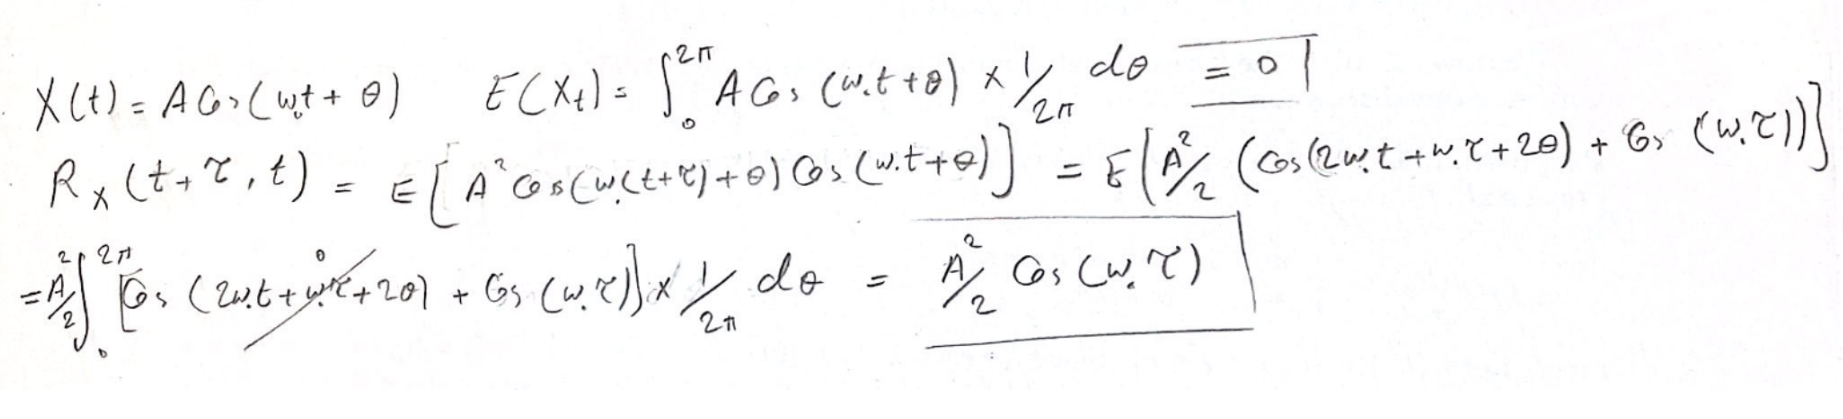 X(t) = A Cos(ω₀t + θ) E(X_t) = ∫₀^{2π} A Cos(ω₀t + θ) × 1/2π dθ = 0
R_X(t+τ, t) = E[A² Cos(ω₀(t+τ)+θ) Cos(ω₀t+θ)] = E[A²/2 (Cos(2ω₀t + ω₀τ + 2θ) + Cos(ω₀τ))]
= A²/2 ∫₀^{2π} [Cos(2ω₀t + ω₀τ + 2θ) 0 + Cos(ω₀τ)] × 1/2π dθ = A²/2 Cos(ω₀τ)